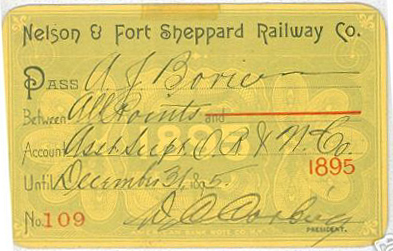 Nelson & Fort Sheppard Railway Co.
Pass A. J. Borie
Between All Points and
Account Asst Supt O. R. & N. Co.
1895
Until December 31, 1895.
No. 109
PRESIDENT.
AMERICAN BANK NOTE CO. N.Y.